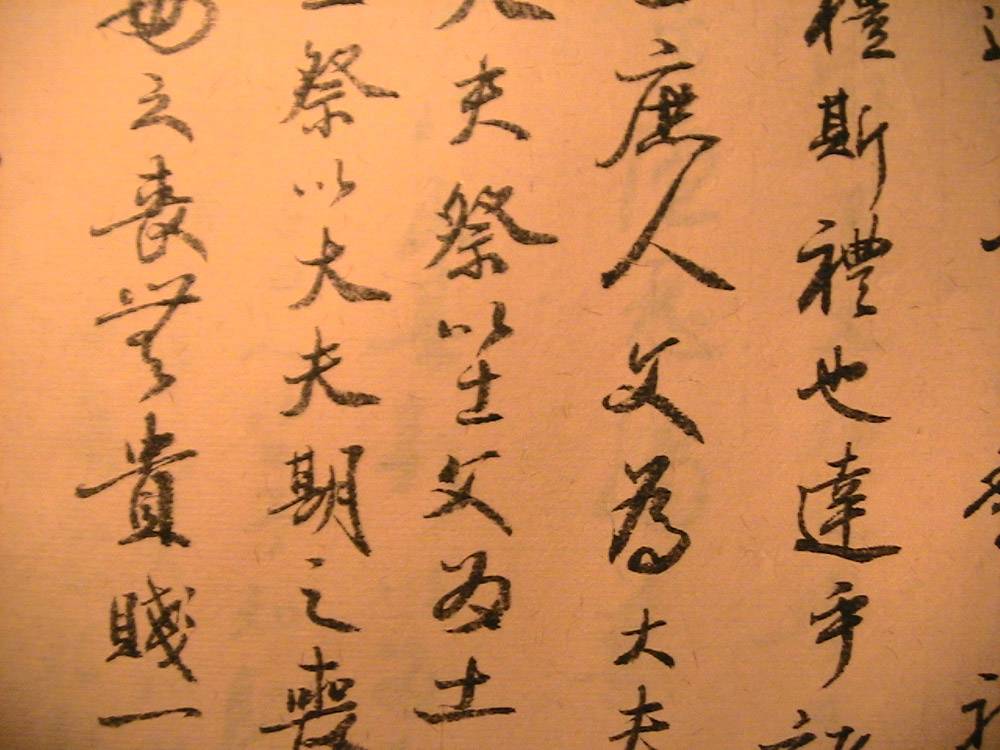 禮斯禮也達乎
庶人父為大夫
大夫祭以士父為士
祭以大夫期之喪
母之喪無貴賤一